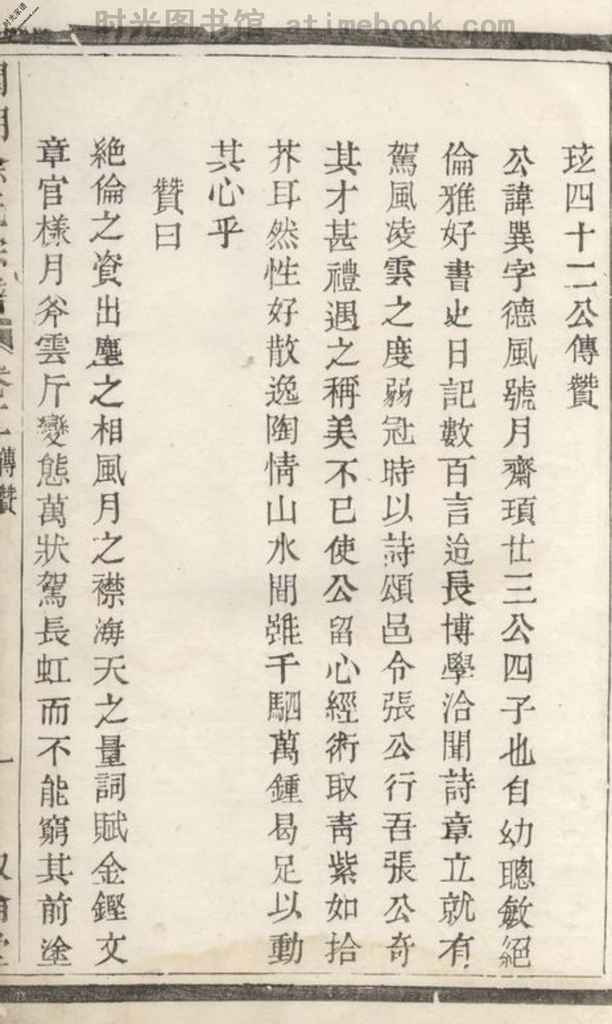 时光图书馆 atimebook.com
玹四十二公傳贊
公諱巽字德風號月齋頊廿三公四子也自幼聰敏絕
倫雅好書史日記數百言迨長博學洽聞詩章立就有
駕風凌雲之度弱冠時以詩頌邑令張公行吾張公奇
其才甚禮遇之稱美不已使公留心經術取青紫如拾
芥耳然性好散逸陶情山水間雖千駟萬鍾曷足以動
其心乎
贊曰
絕倫之資出塵之相風月之襟海天之量詞賦金鏗文
章官樣月斧雲斤變態萬狀駕長虹而不能窮其前塗
傳贊
一